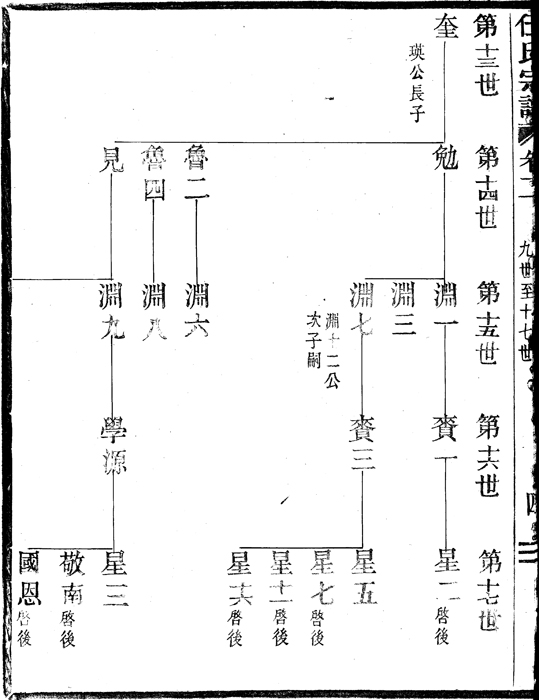 任氏宗譜
卷二
九世至十七世
第十三世
奎
瑛公長子
第十四世
勉
魯二
魯四
見
第十五世
淵一
淵三
淵七
淵十二公
次子嗣
淵六
淵八
淵九
第十六世
賚一
賚三
學源
第十七世
星二
啓後
星五
星七
啓後
星士
啓後
啓後
星三
敬南
啓後
國恩
啓後